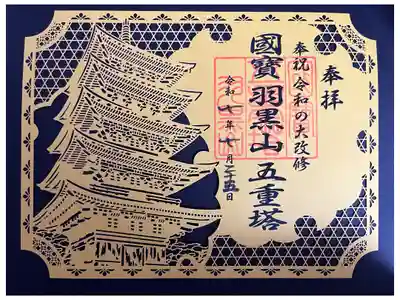 奉拝
奉祝 令和の大改修
國寶 羽黒山 五重塔
令和七年七月二十五日